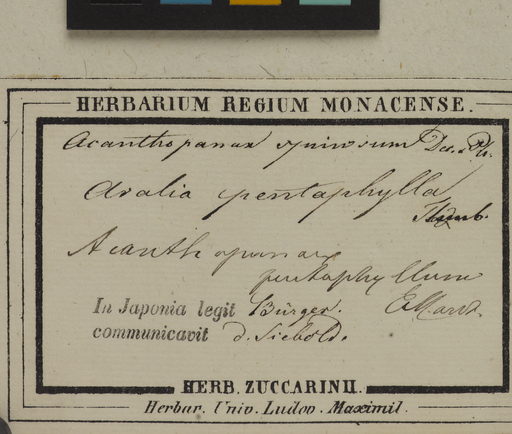 HERBARIUM REGIUM MONACENSE.
Acanthopanax spinosum Dcs. & Pl.
Aralia pentaphylla
Thunb.
Acanthopanax
pentaphyllum
In Japonia legit Bürger. E. March.
communicavit d. Siebold.
HERB. ZUCCARINII.
Herbar. Univ. Ludov. Maximil.